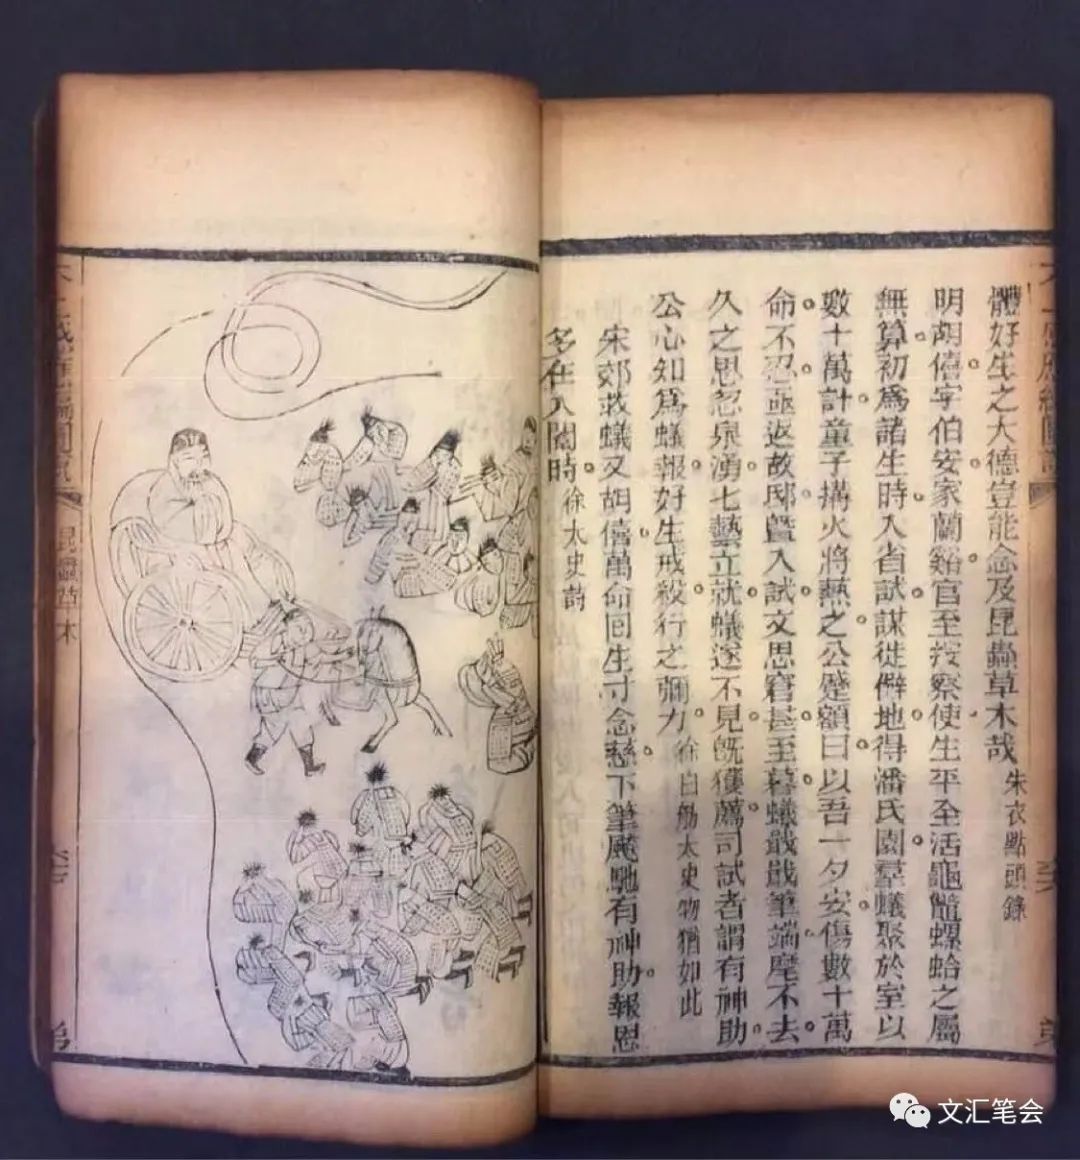 體好生之大德豈能念及昆蟲草木哉 朱衣點頭錄
明胡僖字伯安家蘭谿官至按察使生平全活龜髓螺蛤之屬
無算初爲諸生時入省試謀徙僻地得潘氏園羣蟻聚於室以
數十萬計童子搆火將爇之公蹙額曰以吾一夕安傷數十萬
命不忍亟返故邸暨入試文思窘甚至暮蟻戢戢筆端麾不去
久之思忽泉湧七藝立就蟻遂不見旣獲薦司試者謂有神助
公心知爲蟻報好生戒殺行之彌力 徐白舫太史物猶如此
宋郊救蟻又胡僖萬命囘生寸念慈下筆颷馳有神助報恩
多在入闈時 徐太史詩
昆蟲草木
文汇笔会